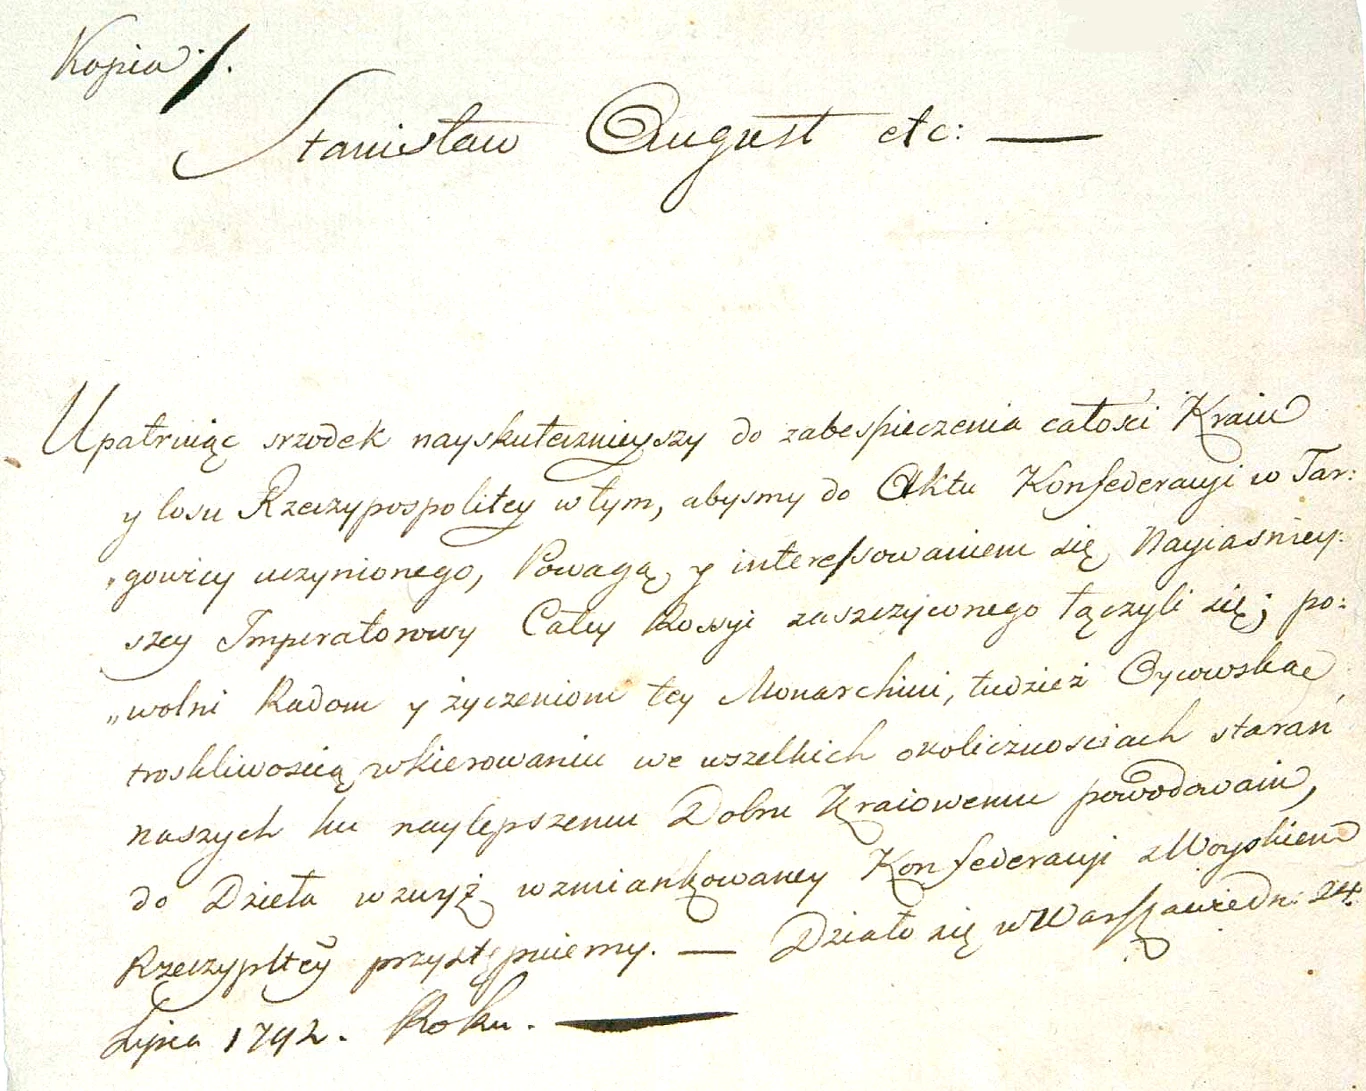 Kopia ./.
Stanisław August etc: —
Upatruiąc srzodek nayskutecznieyszy do zabespieczenia całości Kraiu
y losu Rzeczypospolitey w tym, abysmy do Aktu Konfederacyi w Tar:
„gowicy uczynionego, Powagą y interessowaniem się Nayiaśniey:
szey Imperatorowy Całey Rossyi zaszczyconego łączyli się; po:
„wolni Radom y życzeniom tey Monarchini, tudzież Oycowską
troskliwością w kierowaniu we wszelkich okolicznościach starań
naszych ku naylepszemu Dobru Kraiowemu powodowani,
do Dzieła wzwyż wzmiankowaney Konfederacyi z Woyskiem
Rzeczypltey przystępuiemy. — Działo się w Warszawie Dn: 24.
Lipca 1792. Roku. —